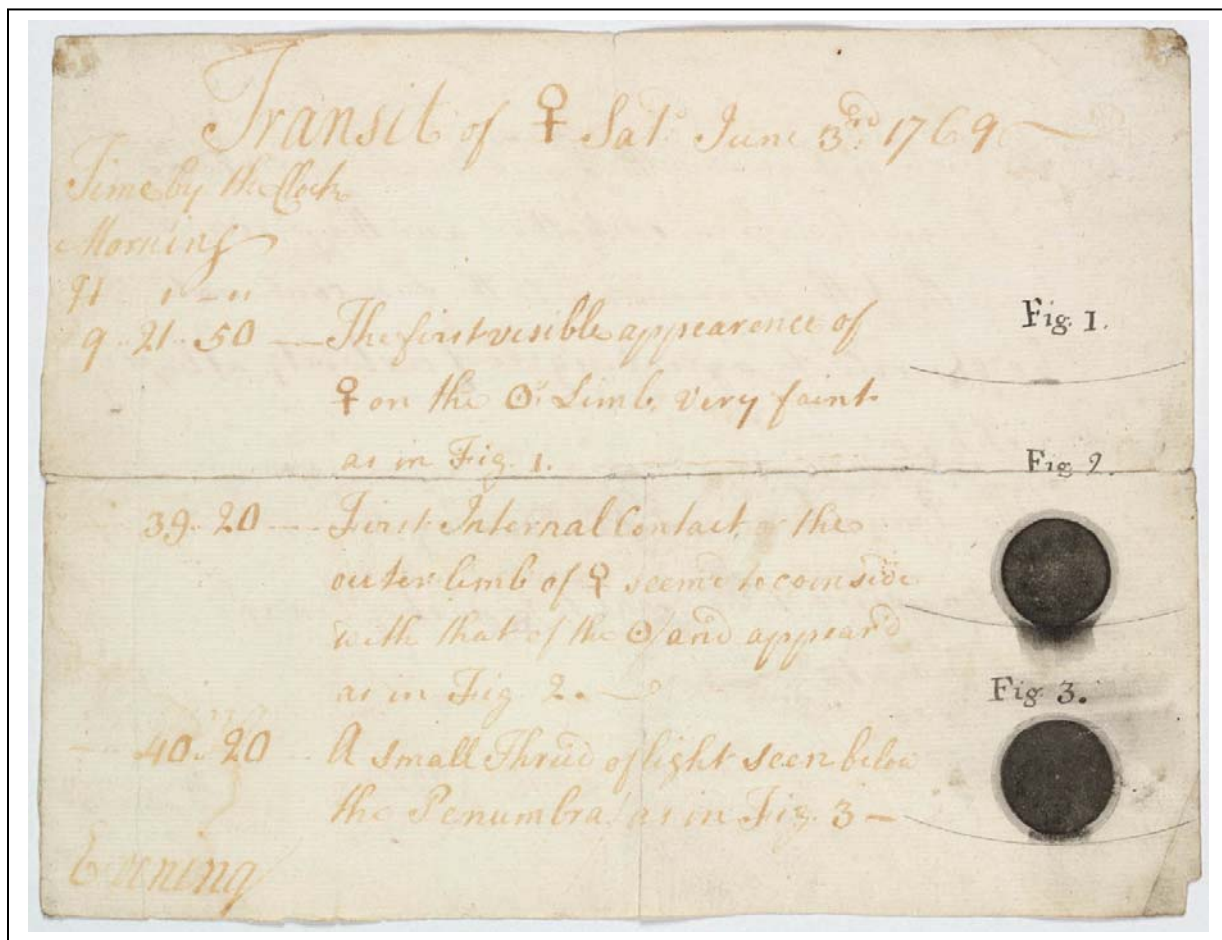 Transit of ♀ Sat. June 3rd 1769
Time by the Clock
Morning
H ′ ″
9 .. 21 .. 50 — The first visible appearence of
Fig. 1.
♀ on the ☉s Limb, very faint
as in Fig. 1.
Fig 2.
39 .. 20 — First Internal Contact, or the
outer limb of ♀ seem'd to coinside
with that of the ☉ and appear'd
as in Fig 2. —
Fig 3.
40 .. 20 — A small Thrid of light seen below
the Penumbra as in Fig. 3 —
Evening